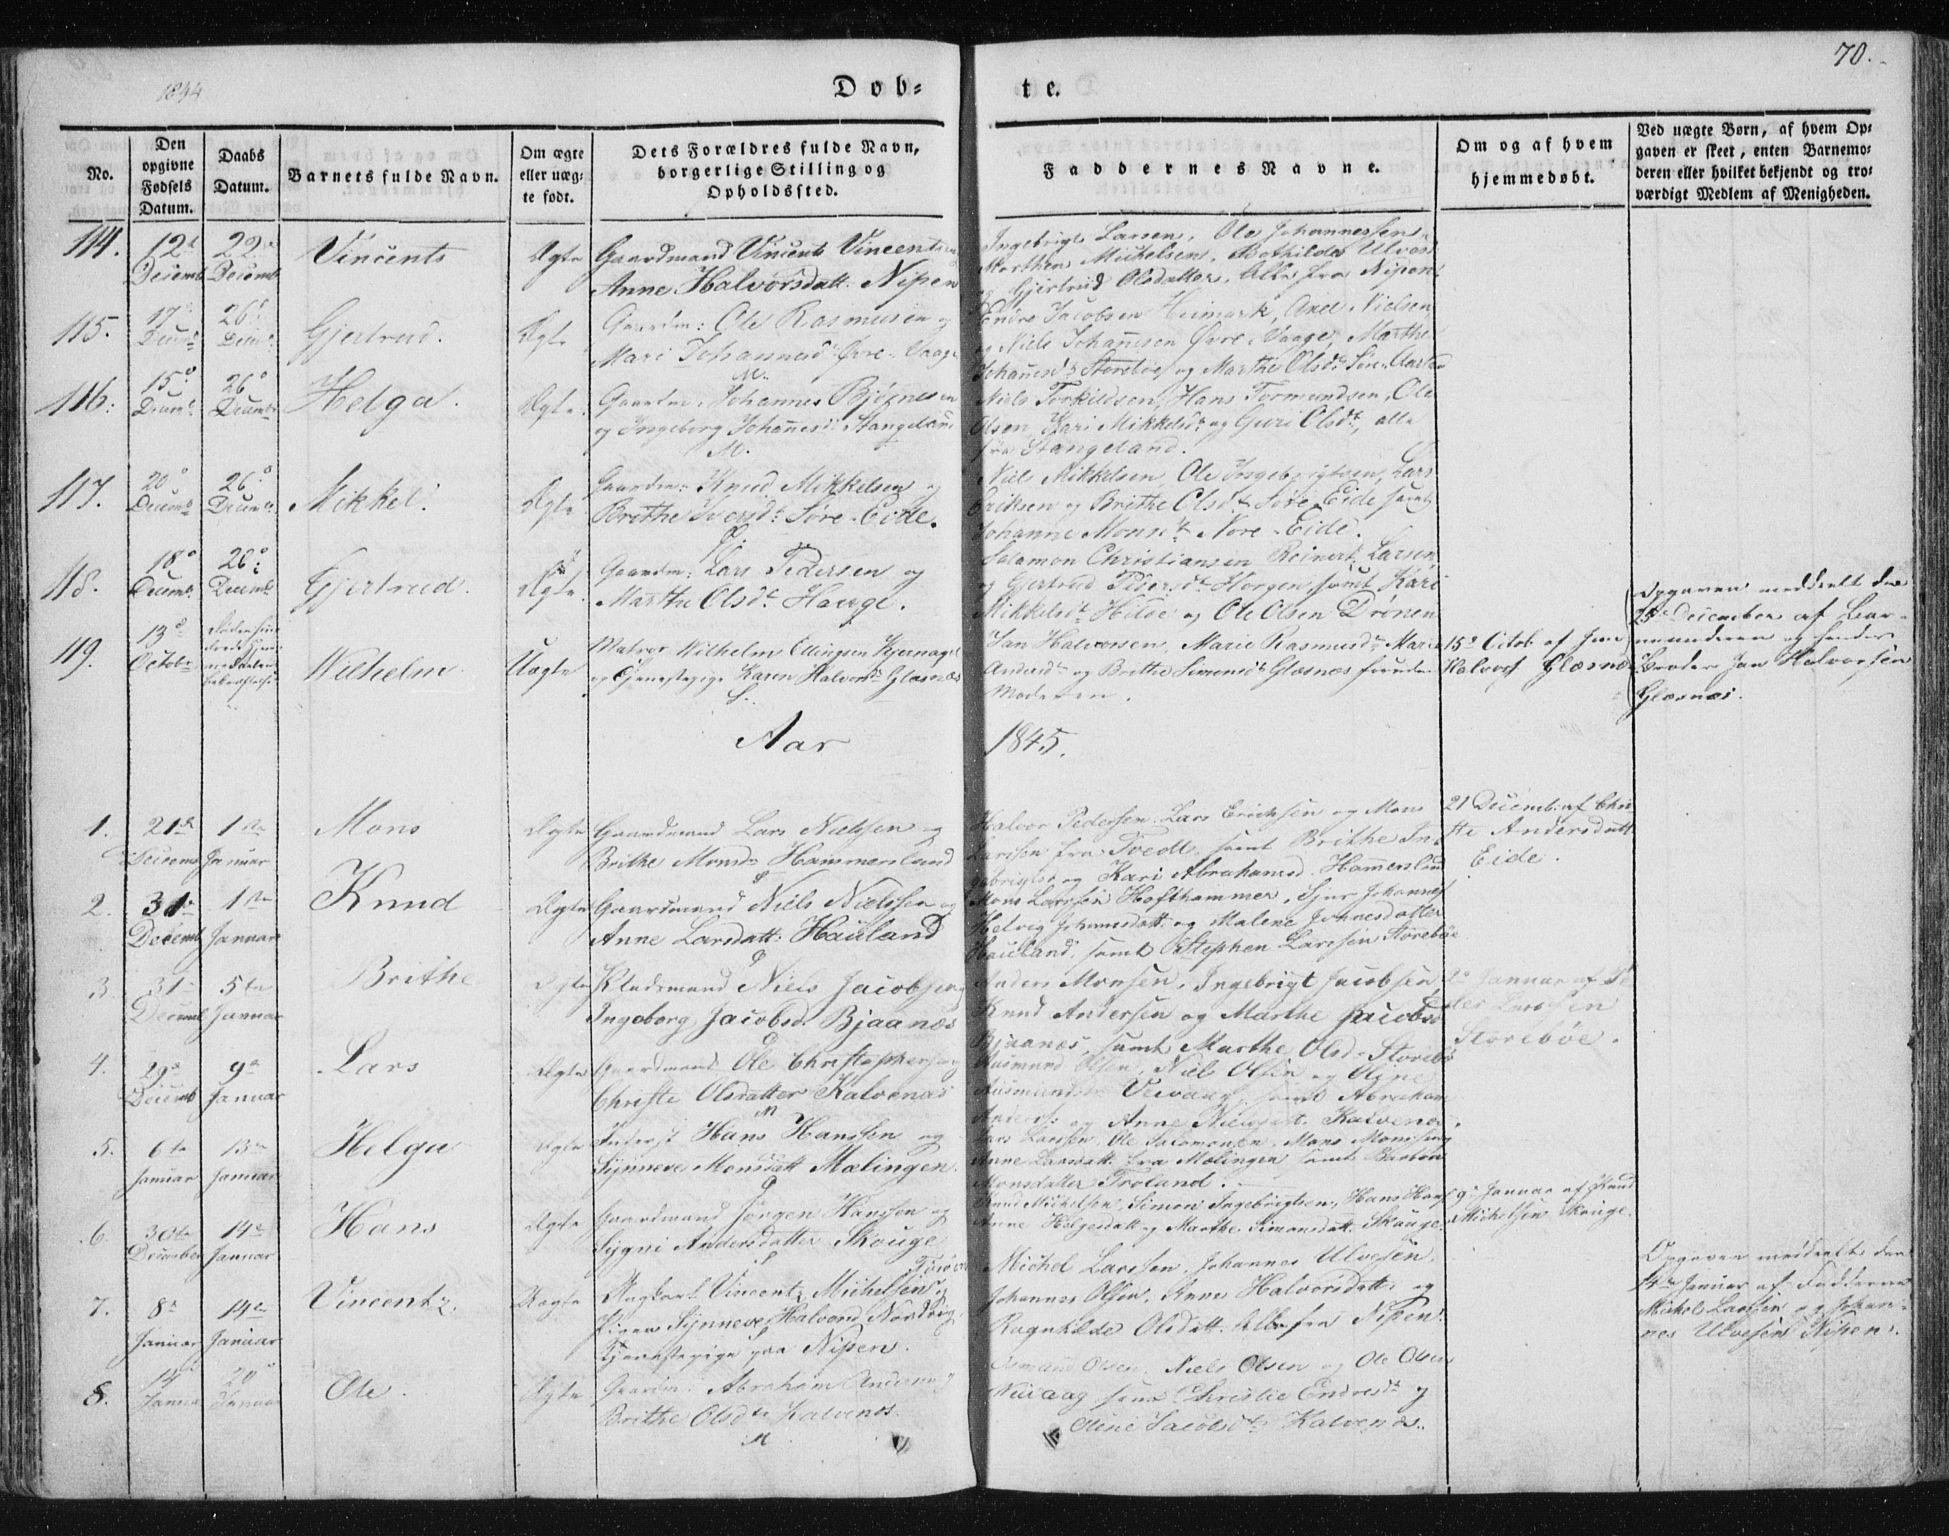 1844
Døb-
te.
70.
No.
Den opgivne Fødsels Datum.
Daabs Datum.
Barnets fulde Navn.
Om ægte eller uægte født.
Dets Forældres fulde Navn, borgerlige Stilling og Opholdssted.
Faddernes Navne.
Om og af hvem hjemmedøbt.
Ved uægte Børn, af hvem Opgaven er skeet, enten Barnemoderen eller hvilket bekjendt og troværdigt Medlem af Menigheden.
114.
12t
Decemb
22
Decemb
Vincents
Ægte
Gaardmand Vincents Vincents
Anne Halvorsdatt. Nipen
Ingebrigt Larsen, Ole Johannessen
Morthen Michelsen, Bothilde
Gjertrud Olsdatter, alle fra Nipen
115.
17
Decemb
26
Decemb
Gjertrud.
Ægte
Gaardm: Ole Rasmusen og
Mari Johannesd. Øvre Vaage
M.
Endre Jacobsen Heimark, Axel Nielsen
og Niels Johannesen Øvre Vaage, Marthe
Johannesdt Storebøe og Marthe Olsdt
116.
15
Decemb
26
Decemb
Helga.
Ægte
Gaardm. Johannes Bjørnesen
og Ingeborg Johannesdt Stangeland
M.
Niels Torkildsen, Hans Tormundsen, Ole
Olsen, Kari Mikkelsdt og Guri Olsdt, alle
fra Stangeland.
117.
20
Decemb
26
Decemb
Mikkel.
Ægte
Gaardm: Knud Mikkelsen og
Brithe Iversdt Søre-Eide.
Niels Mikkelsen, Ole Ingebrigtsen, Lars
Eriksen og Brithe Olsdt Søre Eide samt
Johanne Monsdt Nore-Eide.
118.
18
Decemb
26
Decemb
Gjertrud.
Ægte
Gaardm: Lars Pedersen og
Marthe Olsdt Hauge.
Salamon Christiansen Reinert Larsen
og Gjertrud Pedersdt Horgen, samt Kari
Mikkelsdt Hiløe og Ole Olsen Drønen
119.
13
Octob
Wilhelm
Uægte
Matros Wilhelm Ellingsen Kjernagel
og Tjenestepige Karen Halvorsdt Glæsnæs
Jan Halvorsen, Marie Rasmusdt Marie
Andersdt og Brithe Simonsdt Glæsnæs foruden
Moderen.
15 Octob af Jan
Halvors Glæsnæs
Opgaven meddeelt den
25 December af Bar-
nemoderen og hendes
Broder Jan Halvorsen
Glæsnæs.
Aar
1845.
1.
21
Decemb
1ste
Januar
Mons
Ægte
Gaardmand Lars Nielsen og
Brithe Monsd Hammersland
Halvor Pedersen, Lars Erichsen og Mons
Larssen fra Tvedt, samt Brithe In-
gebrigtsd og Kari Abrahamsd. Hammersland
21 Decemb: af Chri
ste Andersdatt
Eide.
2.
31
Decemb
1ste
Januar
Knud
Ægte
Gaardmand Niels Nielsen og
Anne Larsdatt. Hauland
Mons Larssen Hofthammer, Sjur Johannes
Helvig Johannesdatt. og Malene Johnesdatter
Hauland, samt Stephen Larssen Storebøe
3.
31
Decemb
5te
Januar
Brithe
Ægte
Pladsmand Niels Jacobsen
Ingeborg Jacobsd. Bjaanæs
Anders Monsen, Ingebrigt Jacobsen
Knud Andersen og Marthe Jacobsd
Bjaanæs, samt Marthe Olsd. Storebø
Januar af Pe
der Larssen
Storebøe.
4.
29
Decemb
9
Januar
Lars
Ægte
Gaardmand Ole Christophersen
Christe Olsdatter Kalvenæs
M
Olsen, Niels Olsen og Oline
samt Abraham
og Anne Kalvenæs.
5.
6te
Januar
13
Januar
Helga
Ægte
Inderst Hans Hanssen og
Synneve Monsdatt Mælingen.
Lars Larssen, Ole Salomonsen, Mons Monssen
Anne Larsdatt. fra Mælingen samt
Monsdatter Troland.
6.
30te
December
14
Januar
Hans
Ægte
Gaardmand Jørgen Hanssen og
Sygni Andersdatter Skouge
Knud Michelsen, Simon Ingebrigtsen, Hans Hans
Anne Helgesdatt og Marthe Simonsdatt. Skouge.
9 Januar af Knud
Michelsen Skouge.
7.
8
Januar
14
Januar
Vincentz.
Uægte
Ungkarl Vincentz Michelsen
Pigen Synneve Halvorsd Nordvig
Tjenestepige paa Nipen.
Michel Larssen, Johannes Ulvesen,
Johannes Olsen, Anne Halvorsdatt. og
Ragnhilde Olsdatt. Alle fra Nipen.
Opgaven meddeelt den
14 Januar af Fadderne
Michel Larssen og Johan-
nes Ulvesen Nipen.
8.
14
Januar
20
Januar
Ole.
Ægte
Gaardm: Abraham Andersen og
Brithe Olsdtr Kalvenæs.
M
Olsen, Niels Olsen og Ole Olsen
samt Christie Endresdt og
Oline Jacobsdtr Kalvenæs.